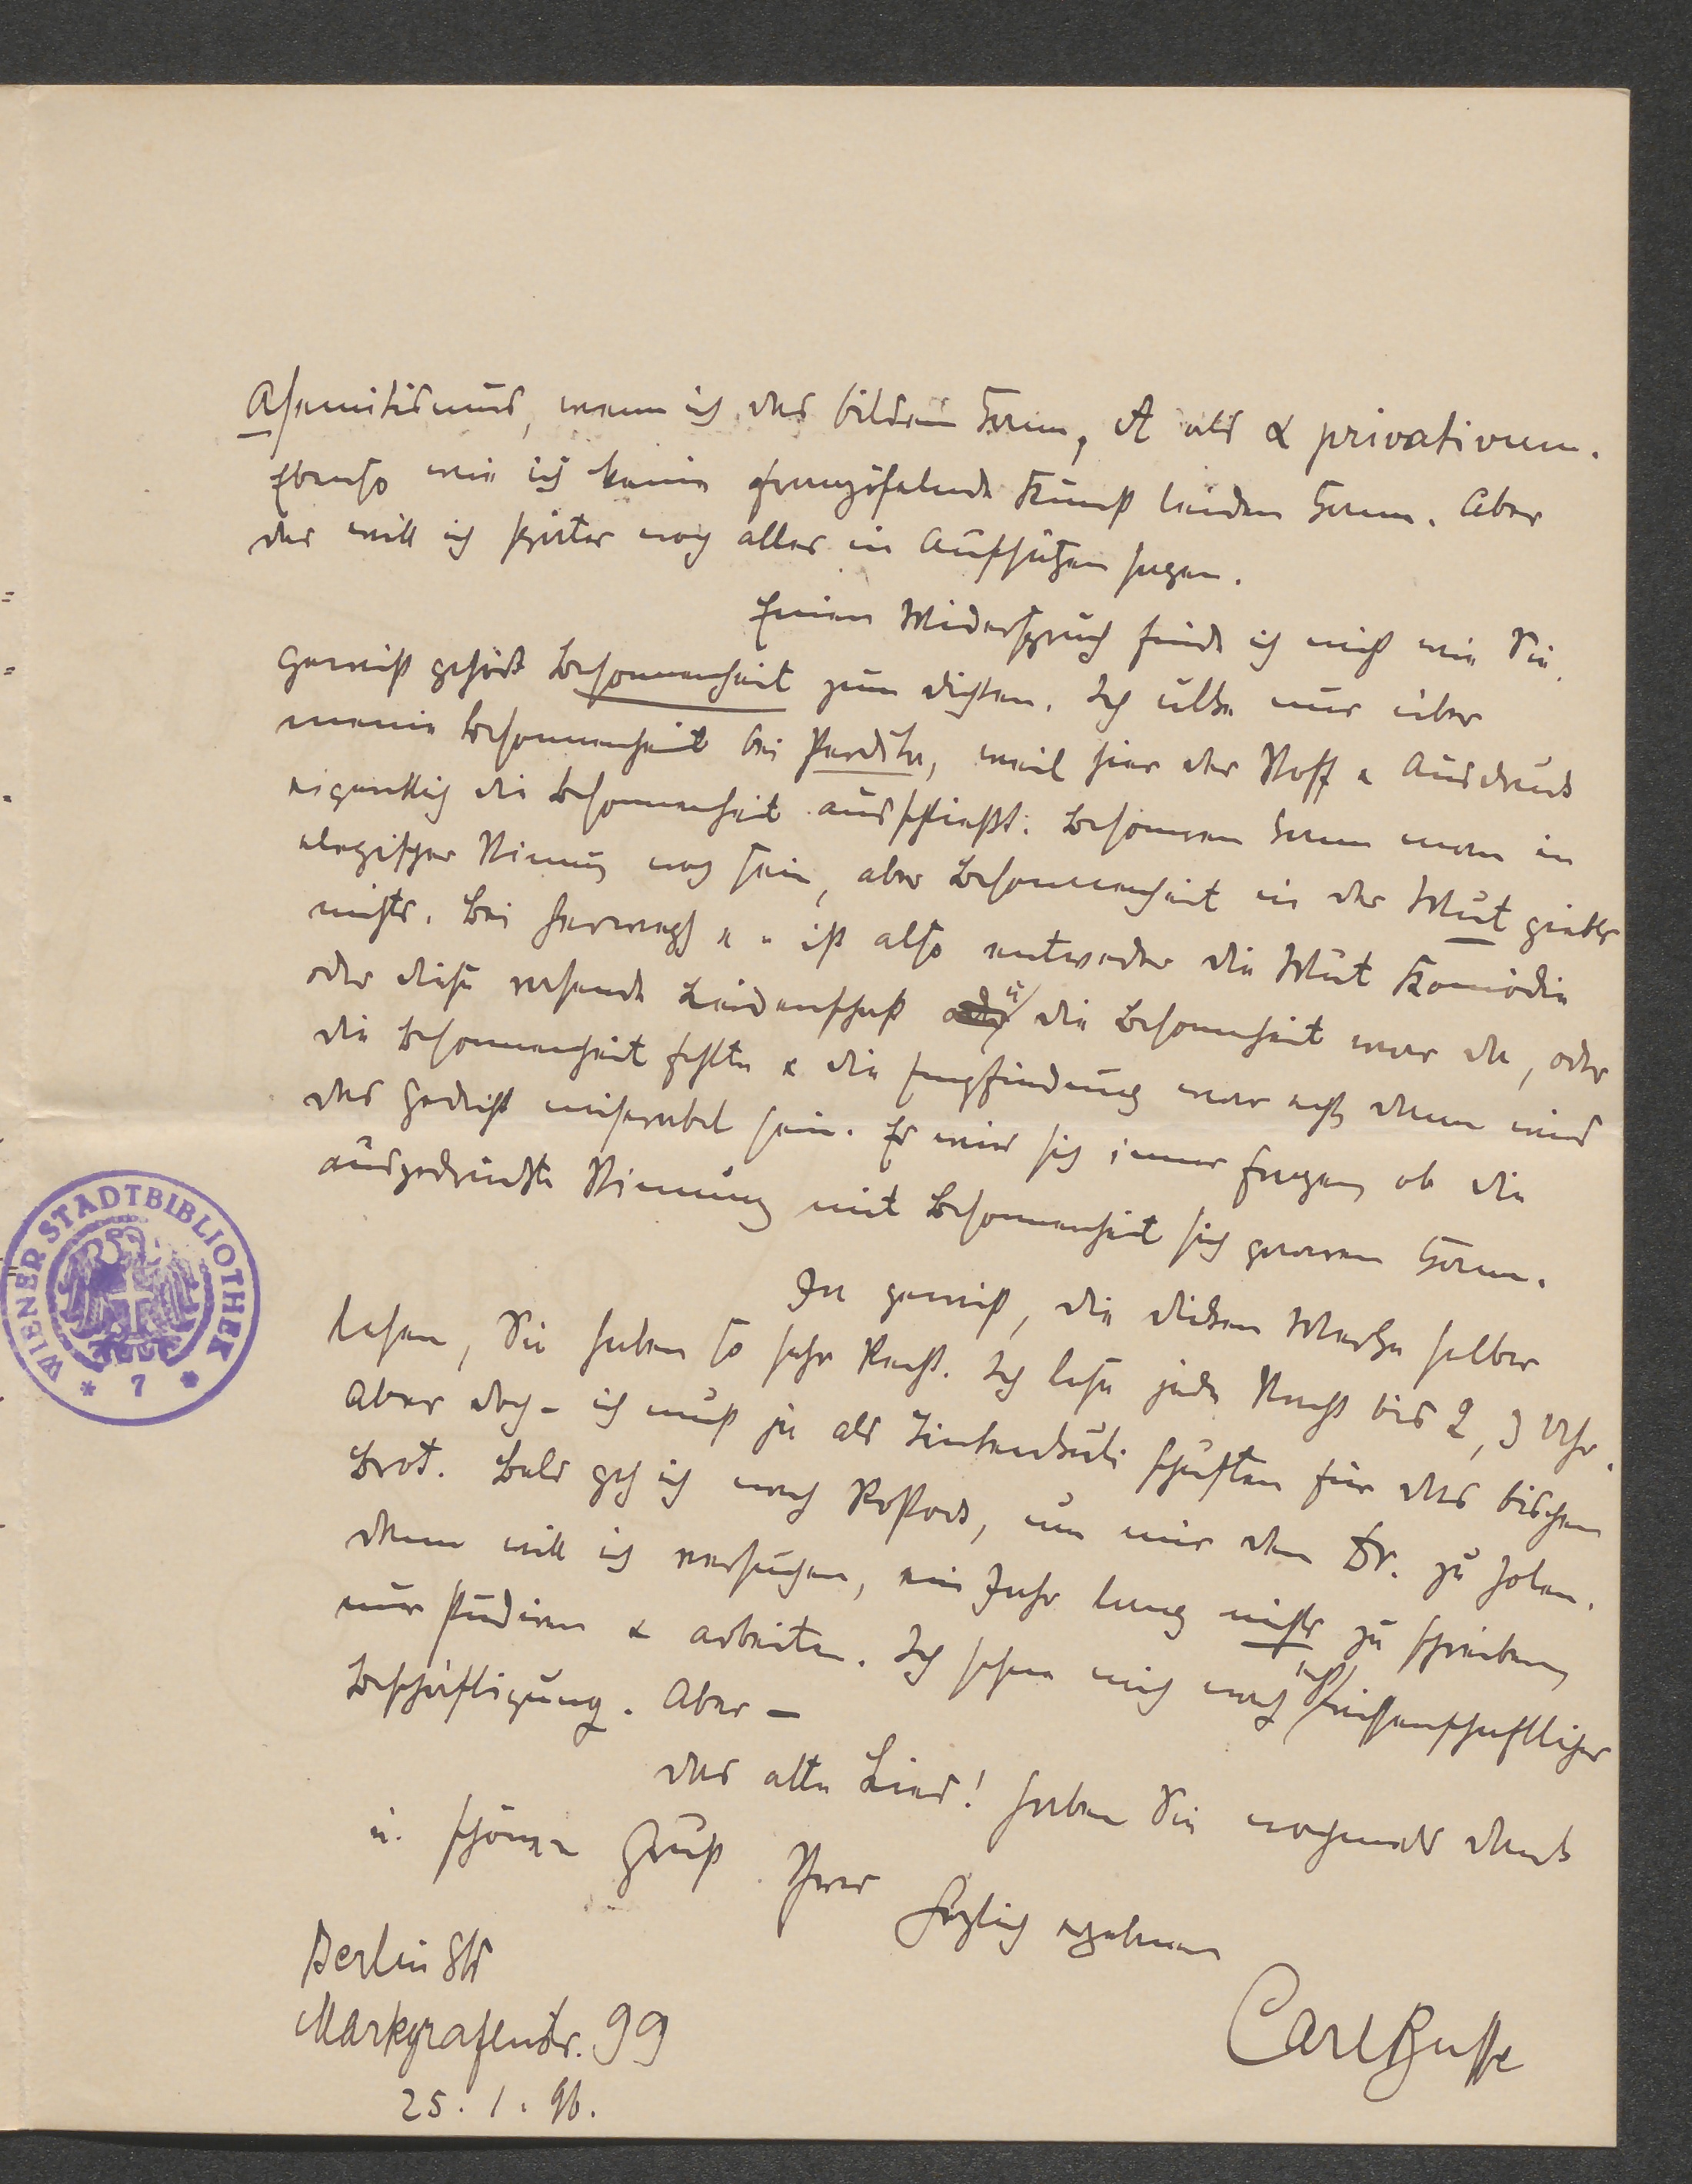 Asemitismus, wenn ich das bilden kann, A als α privativum.
Ebenso wie ich keine französelnde Kunst leiden kann. Aber
das will ich später noch alles in Aufsätzen sagen.
Einen Widerspruch finde ich nicht wie Sie.
Gewiß gehört Besonnenheit zum dichten. Ich ulke nur über
meine Besonnenheit bei Perdita, weil hier der Stoff & Ausdruck
eigentlich die Besonnenheit ausschließt. Besonnen kann man in
elegischer Stimmung noch sein, aber Besonnenheit in der Wut giebts
nicht. Bei Herwegh ist also entweder die Wut Komödie
oder diese rasende Leidenschaft u die Besonnheit war da, oder
die Besonnenheit fehlte & die Empfindung war echt dann wird
das Gedicht miserabel sein. Es wird sich immer fragen, ob die
ausgedrückte Stimmung mit Besonnenheit sich paaren kann.
Ja gewiß, die dicken Werke selber
lesen, Sie haben so sehr Recht. Ich lese jede Nacht bis 2, 3 Uhr.
Aber doch – ich muß ja als Tintenkuli schuften für das bischen
Brot. Bald geh ich nach Rostock, um mir den Dr. zu holen.
dann will ich versuchen, ein Jahr lang nichts zu schreiben,
nur studiren & arbeiten. Ich sehne mich nach wissenschaftlicher
Beschäftigung. Aber –
das alte Lied! Haben Sie nochmals Dank
u. schönen Gruß Ihres herzlich ergebenen
Carl Busse
Berlin SW
Markgrafenstr. 99
25. 1. 96.
WIENER STADTBIBLIOTHEK
* 7 *